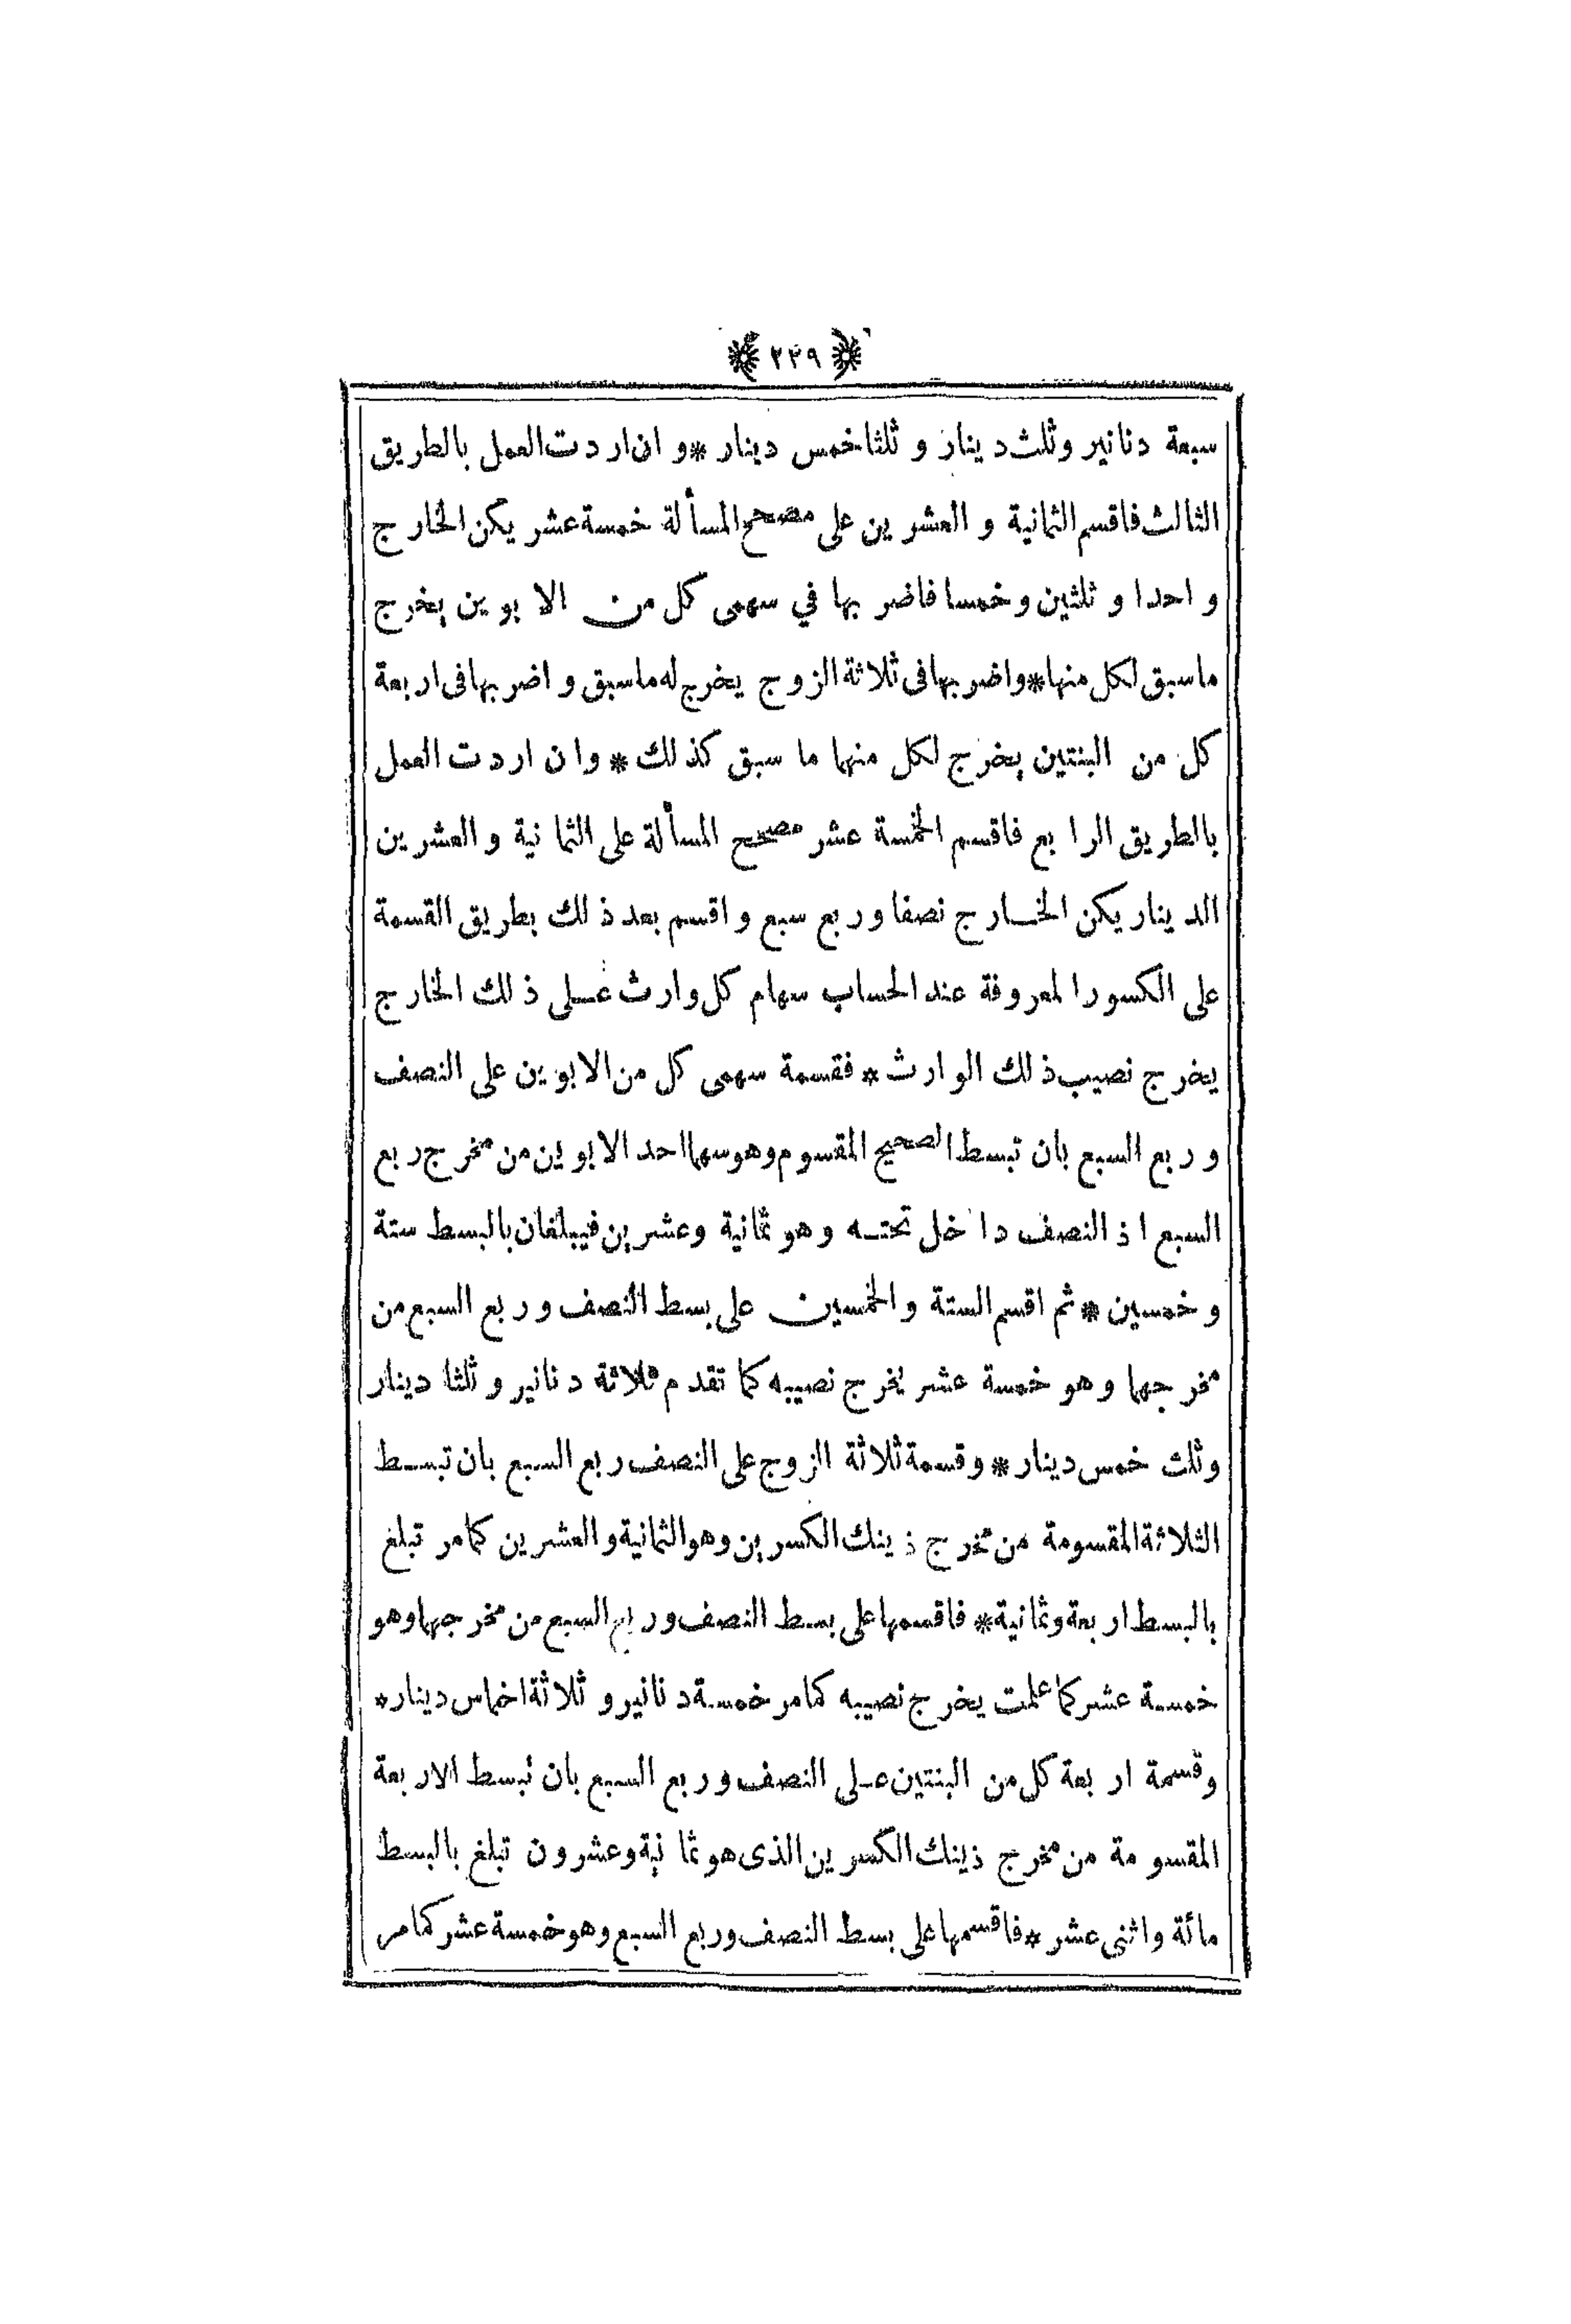 ٢٣٩
سبعة دنانير وثلث دينار وثلثا خمس دينار * وان اردت العمل بالطريق
الثالث فاقسم الثمانية والعشرين على مصحح المسألة خمسة عشر يكن الخارج
واحدا وثلثين وخمسا فاضربها في سهمى كل من الابوين يخرج
ماسبق لكل منهما * واضربها فى ثلاثة الزوج يخرج له ماسبق واضربها فى اربعة
كل من البنتين يخرج لكل منهما ما سبق كذلك * وان اردت العمل
بالطريق الرابع فاقسم الخمسة عشر مصحح المسألة على الثمانية والعشرين
الدينار يكن الخارج نصفا وربع سبع واقسم بعد ذلك بطريق القسمة
على الكسور المعروفة عند الحساب سهام كل وارث على ذلك الخارج
يخرج نصيب ذلك الوارث * فقسمة سهمى كل من الابوين على النصف
وربع السبع بان تبسط الصحيح المقسوم وهو سهما احد الابوين من مخرج ربع
السبع اذ النصف داخل تحته وهو ثمانية وعشرين فيبلغان بالبسط ستة
وخمسين * ثم اقسم الستة والخمسين على بسط النصف وربع السبع من
مخرجهما وهو خمسة عشر يخرج نصيبه كما تقدم ثلاثة دنانير وثلثا دينار
وثلث خمس دينار * وقسمة ثلاثة الزوج على النصف ربع السبع بان تبسط
الثلاثة المقسومة من مخرج ذينك الكسرين وهو الثمانية والعشرين كمامر تبلغ
بالبسط اربعة وثمانية * فاقسمها على بسط النصف وربع السبع من مخرجهما وهو
خمسة عشر كما علمت يخرج نصيبه كمامر خمسة دنانير وثلاثة اخماس دينار *
وقسمة اربعة كل من البنتين على النصف وربع السبع بان تبسط الاربعة
المقسومة من مخرج ذينك الكسرين الذى هو ثمانية وعشرون تبلغ بالبسط
مائة واثنى عشر * فاقسمها على بسط النصف وربع السبع وهو خمسة عشر كمامر